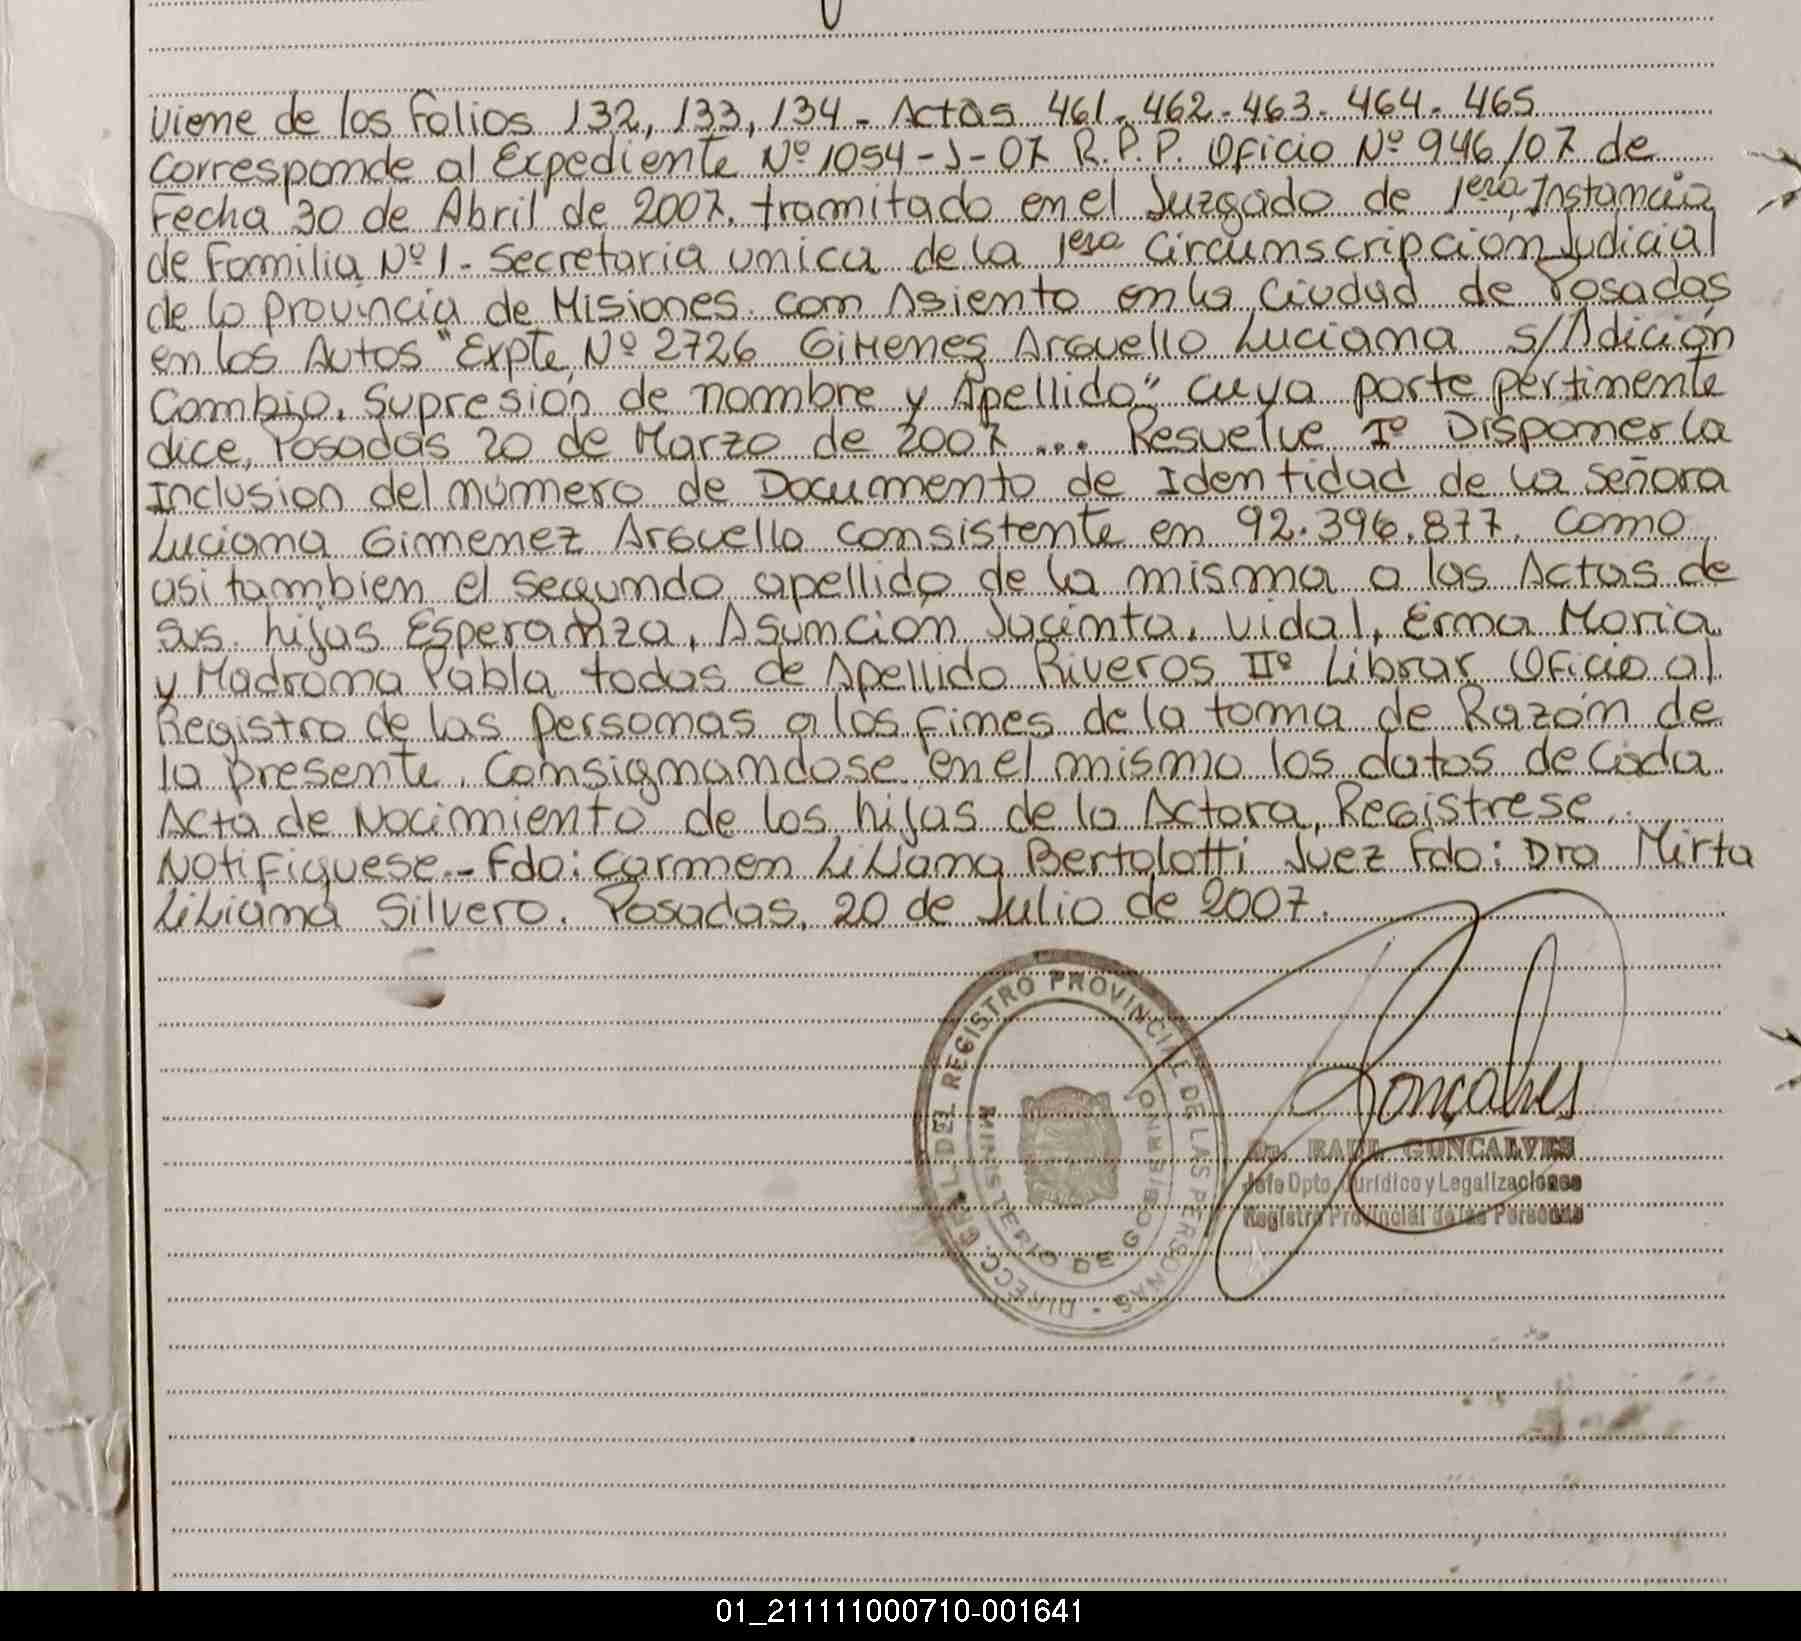 Viene de los Folios 132, 133, 134 - Actas 461. 462. 463. 464. 465
Corresponde al Expediente Nº 1054-J-07 R.P.P. Oficio Nº 946/07 de
Fecha 30 de Abril de 2007. tramitado en el Juzgado de 1era Instancia
de Familia Nº 1 - Secretaria unica de la 1era Circunscripcion Judicial
de la provincia de Misiones. con Asiento en la Ciudad de Posadas
en los Autos "Expte Nº 2726 Gimenes Arguello Luciana s/Adición
Cambio, Supresión de nombre y Apellido" cuya parte pertinente
dice, Posadas 20 de Marzo de 2007 ... Resuelve Iº Disponer la
Inclusion del número de Documento de Identidad de la Señora
Luciana Gimenez Arguello consistente en 92.396.877. Como
asi tambien el segundo apellido de la misma a las Actas de
sus hijas Esperanza, Asunción Jacinta, Vidal, Erma Maria
y Madrona Pabla todas de Apellido Riveros IIº Librar Oficio al
Registro de las personas a los Fines de la toma de Razón de
la presente, Consignandose en el mismo los datos de Cada
Acta de Nacimiento de los hijas de la Actora, Registrese..
Notifiquese.- Fdo: Carmen Liliana Bertolotti Juez Fdo: Dra Mirta
Liliana Silvero. Posadas, 20 de Julio de 2007.
DIRECC. GRAL DEL REGISTRO PROVINCIAL DE LAS PERSONAS -
MINISTERIO DE GOBIERNO
Goncalves
Dr. RAUL GONCALVES
Jefe Dpto. Jurídico y Legalizaciones
Registro Provincial de las Personas
01_211111000710-001641